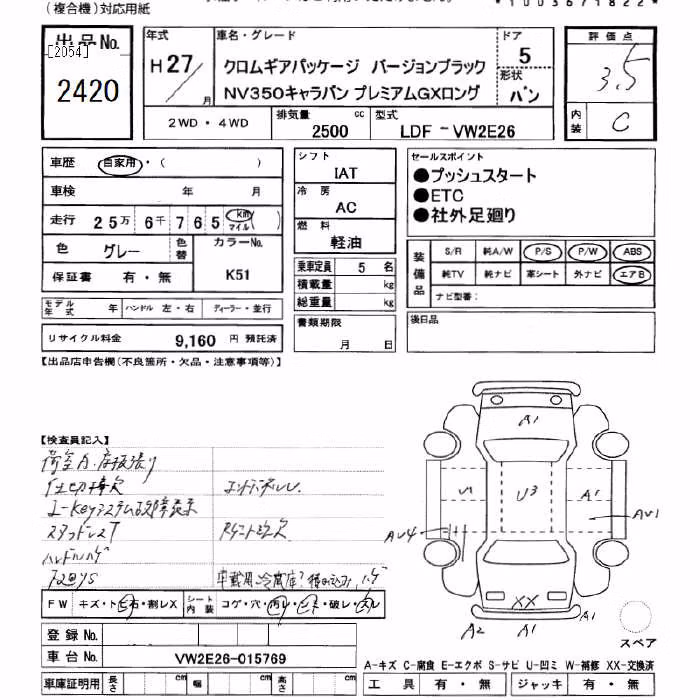 (複合機)対応用紙
*1003671822*
出品No.
[2054]
2420
年式
H27/
月
車名・グレード
クロムギアパッケージ バージョンブラック
NV350キャラバン プレミアムGXロング
ドア
5
形状
バン
評価点
3.5
内装
C
2WD・4WD
排気量
2500
cc
型式
LDF-VW2E26
車歴
自家用・( )
車検 年 月
走行 25万 6千 765 km マイル( )
色 グレー 色替 カラーNo.
K51
保証書 有・無
モデル年式 年 ハンドル 左・右 ディーラー・並行
リサイクル料金 9,160 円 預託済
シフト
IAT
冷房
AC
燃料
軽油
乗車定員 5 名
積載量 kg
総重量 kg
書類期限
月 日
セールスポイント
●プッシュスタート
●ETC
●社外足廻り
装備品
S/R 純A/W P/S P/W ABS
純TV 純ナビ 革シート 外ナビ エアB
ナビ型番:
後日品
【出品店申告欄(不良箇所・欠品・注意事項等)】
【検査員記入】
荷室内、床板張り
仕切棒欠
I-Keyシステム故障表示
スタッドレスT
ハンドルハゲ
A1
U1
U3
A1
AU4
AU1
XX
A2
A1
A1
スペア
FW キズ・トビ石・割レX シート内装 コゲ・穴・汚レ・シミ・破レ・スレ
登録No.
車台No. VW2E26-015769
車庫証明用 長さ cm 幅 cm 高さ cm
A-キズ C-腐食 E-エクボ S-サビ U-凹ミ W-補修 XX-交換済
工具 有・無 ジャッキ 有・無